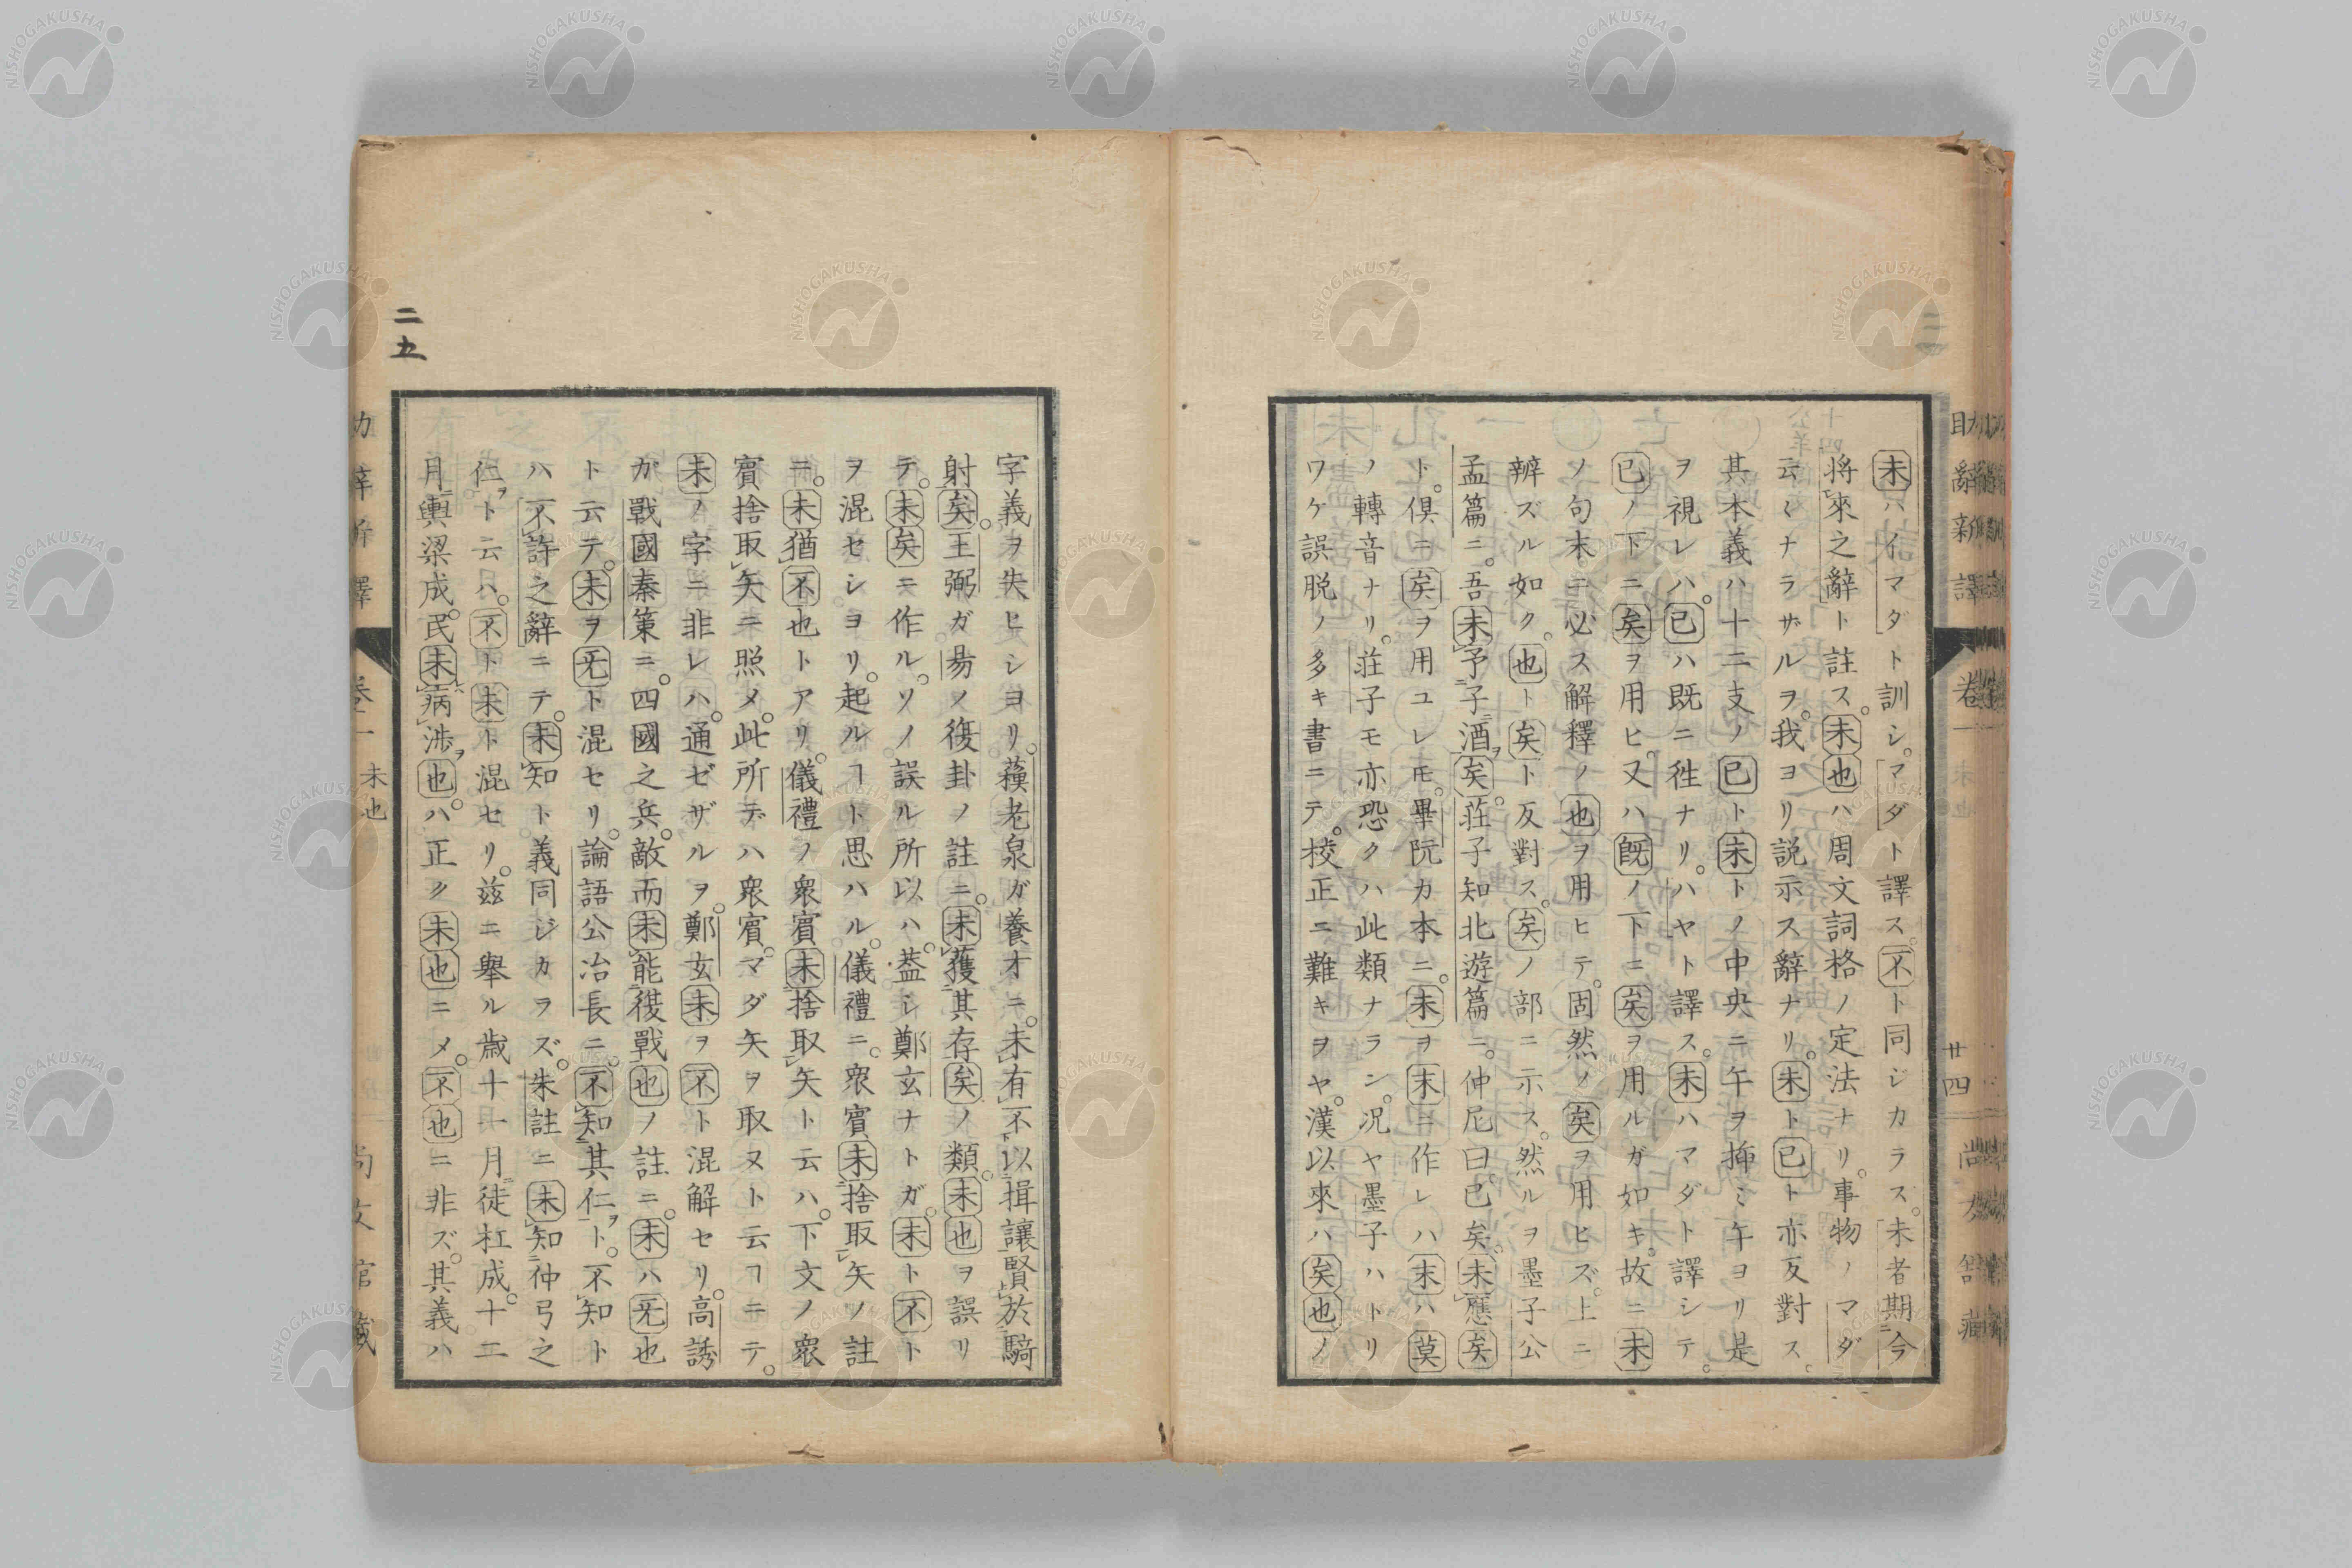 未ハイマダト訓シ。マダト譯ス。不ト同ジカラス。未者期今
将來之辭ト註ス。未也ハ周文詞格ノ定法ナリ。事物ノマダ
云〻ナラザルヲ。我ヨリ説示ス辭ナリ。未ト已ト亦反對ス。
其本義ハ十二支ノ已ト未トノ中央ニ午ヲ挿ミ午ヨリ是
ヲ視レハ。已ハ既ニ徃ナリ。ハヤト譯ス。未ハマダト譯シテ。
已ノ下ニ矣ヲ用ヒ。又ハ既ノ下ニ矣ヲ用ルガ如キ。故ニ未
ノ句末ニ必ス解釋ノ也ヲ用ヒテ。固然ノ矣ヲ用ヒズ。上ニ
辨ズル如ク。也ト矣ト反對ス。矣ノ部ニ示ス。然ルヲ墨子公
孟篇ニ。吾未予子酒矣。荘子知北遊篇ニ。仲尼曰。已矣。未應矣
ト。倶ニ矣ヲ用ユレモ。畢阮カ本ニ。未ヲ末ニ作レハ末ハ莫
ノ轉音ナリ。荘子モ亦恐クハ此類ナラン。况ヤ墨子ハトリ
ワケ誤脱ノ多キ書ニテ。校正ニ難キヲヤ。漢以來ハ矣也ノ
助辭新譯
卷一
廿四
尚友舘藏
字義ヲ失ヒシヨリ。蘓老泉ガ養才ニ。未有不以揖讓賢於騎
射矣。王弼ガ易ノ復卦ノ註ニ。未獲其存矣ノ類。未也ヲ誤リ
テ。未矣ニ作ル。ソノ誤ル所以ハ。葢シ鄭玄ナトガ。未ト不ト
ヲ混セシヨリ。起ルヿト思ハル。儀禮ニ。衆賓未捨取矢ノ註
ニ。未猶不也トアリ。儀禮ノ衆賓未捨取矢ト云ハ。下文ノ衆
賓捨取矢ニ照メ。此所デハ衆賓。マダ矢ヲ取ヌト云ヿニテ。
未ノ字ニ非レハ。通ゼザルヲ。鄭玄未ヲ不ト混解セリ。高誘
ガ戰國秦策ニ。四國之兵。敵而未能復戰也ノ註ニ。未ハ无也
ト云テ。未ヲ无ト混セリ。論語公冶長ニ。不知其仁ト。不知ト
ハ不許之辭ニテ。未知ト義同ジカラズ。朱註ニ未知仲弓之
仁ヲト云ハ。不ト未ト混セリ。茲ニ舉ル歳十一月徒杠成。十二
月輿梁成。民未病渉也。ハ正ク未也ニメ。不也ニ非ズ。其義ハ
二五
未也